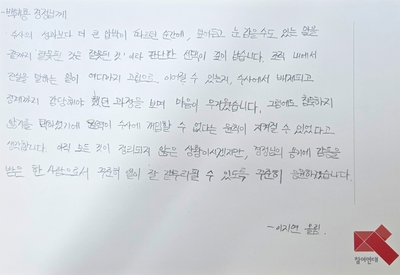 -백해룡 경정님께
수사의 성과보다 더 큰 압박이 파도치던 순간에, 덮어두고 눈 감을수도 있는 일을
끝까지 '잘못된 것은 잘못된 것' 이라 판단한 선택이 깊이 남습니다. 조직 내에서
진실을 말하는 일이 어디까지 고립으로 이어질 수 있는지, 수사에서 배제되고
징계까지 감당해야 했던 과정을 보며 마음이 무거웠습니다. 그럼에도 침묵하지
않기를 택하셨기에 권력이 수사에 개입할 수 없다는 원칙이 지켜질 수 있었다고
생각합니다. 아직 모든 것이 정리되지 않은 상황이시겠지만, 경정님의 용기에 감동을
받은 한 사람으로서 꾸준히 일이 잘 마무리될 수 있도록 꾸준히 응원하겠습니다.
- 이지연 올림
참여연대